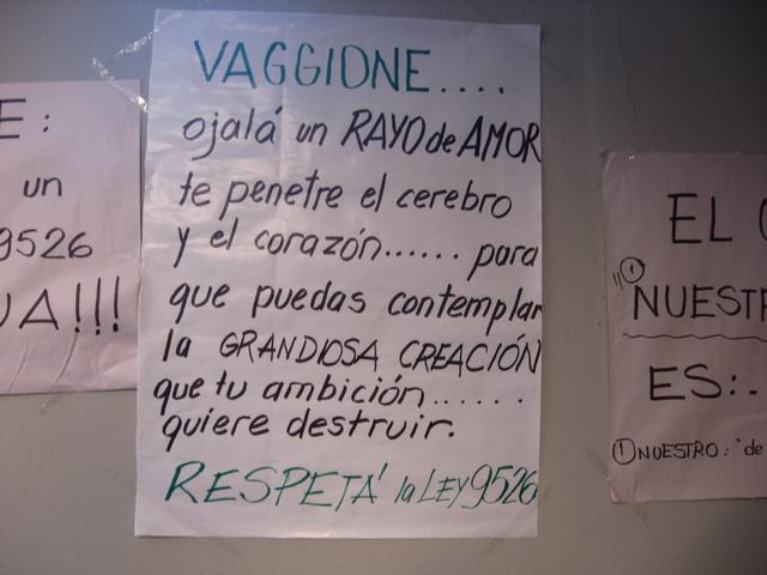 E:
un
9526
UA!!!
VAGGIONE....
ojalá un RAYO de AMOR
te penetre el cerebro
y el corazón...... para
que puedas contemplar
la GRANDIOSA CREACIÓN
que tu ambición......
quiere destruir.
RESPETÁ la LEY 9526
EL
"① NUESTR
ES:.
① NUESTRO: "de